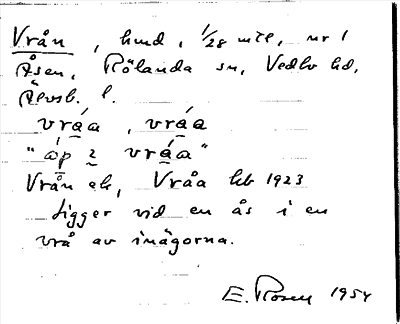 Vrån, hmd, 1/28 mtl, nr 1
Åsen, Rölanda sn, Vedbo hd,
Älvsb. l.
vråa, vråa
"åp 2 vråa"
Vrån ek, Vråa hb 1923
Ligger vid en ås i en
vrå av inägorna.
E. Rosen 1954